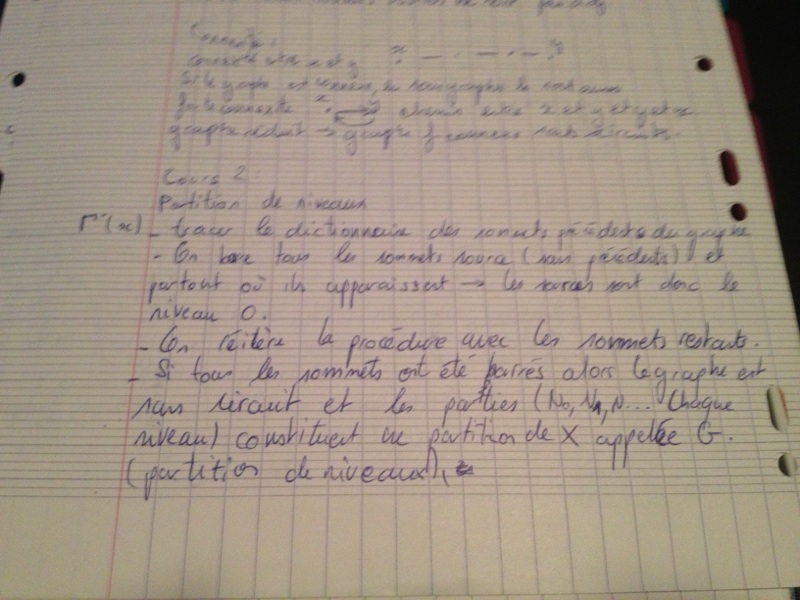 Connexité:
connexité entre x et y x y
Si le graphe est connexe, les sous graphes le sont aussi
forte connexité x y chemin entre x et y et y et x
graphe réduit → graphe f connexe sans circuits.
Cours 2:
Partition de niveaux
Γ⁻(x) - tracer le dictionnaire des sommets précédents du graphe
- On barre tous les sommets source (sans précédents) et
partout où ils apparaissent → les sources sont donc le
niveau 0.
- On réitère la procédure avec les sommets restants.
- Si tous les sommets ont été barrés alors le graphe est
sans circuit et les parties (N0, N1, N... Chaque
niveau) constituent une partition de X appelée G.
(partition de niveaux),